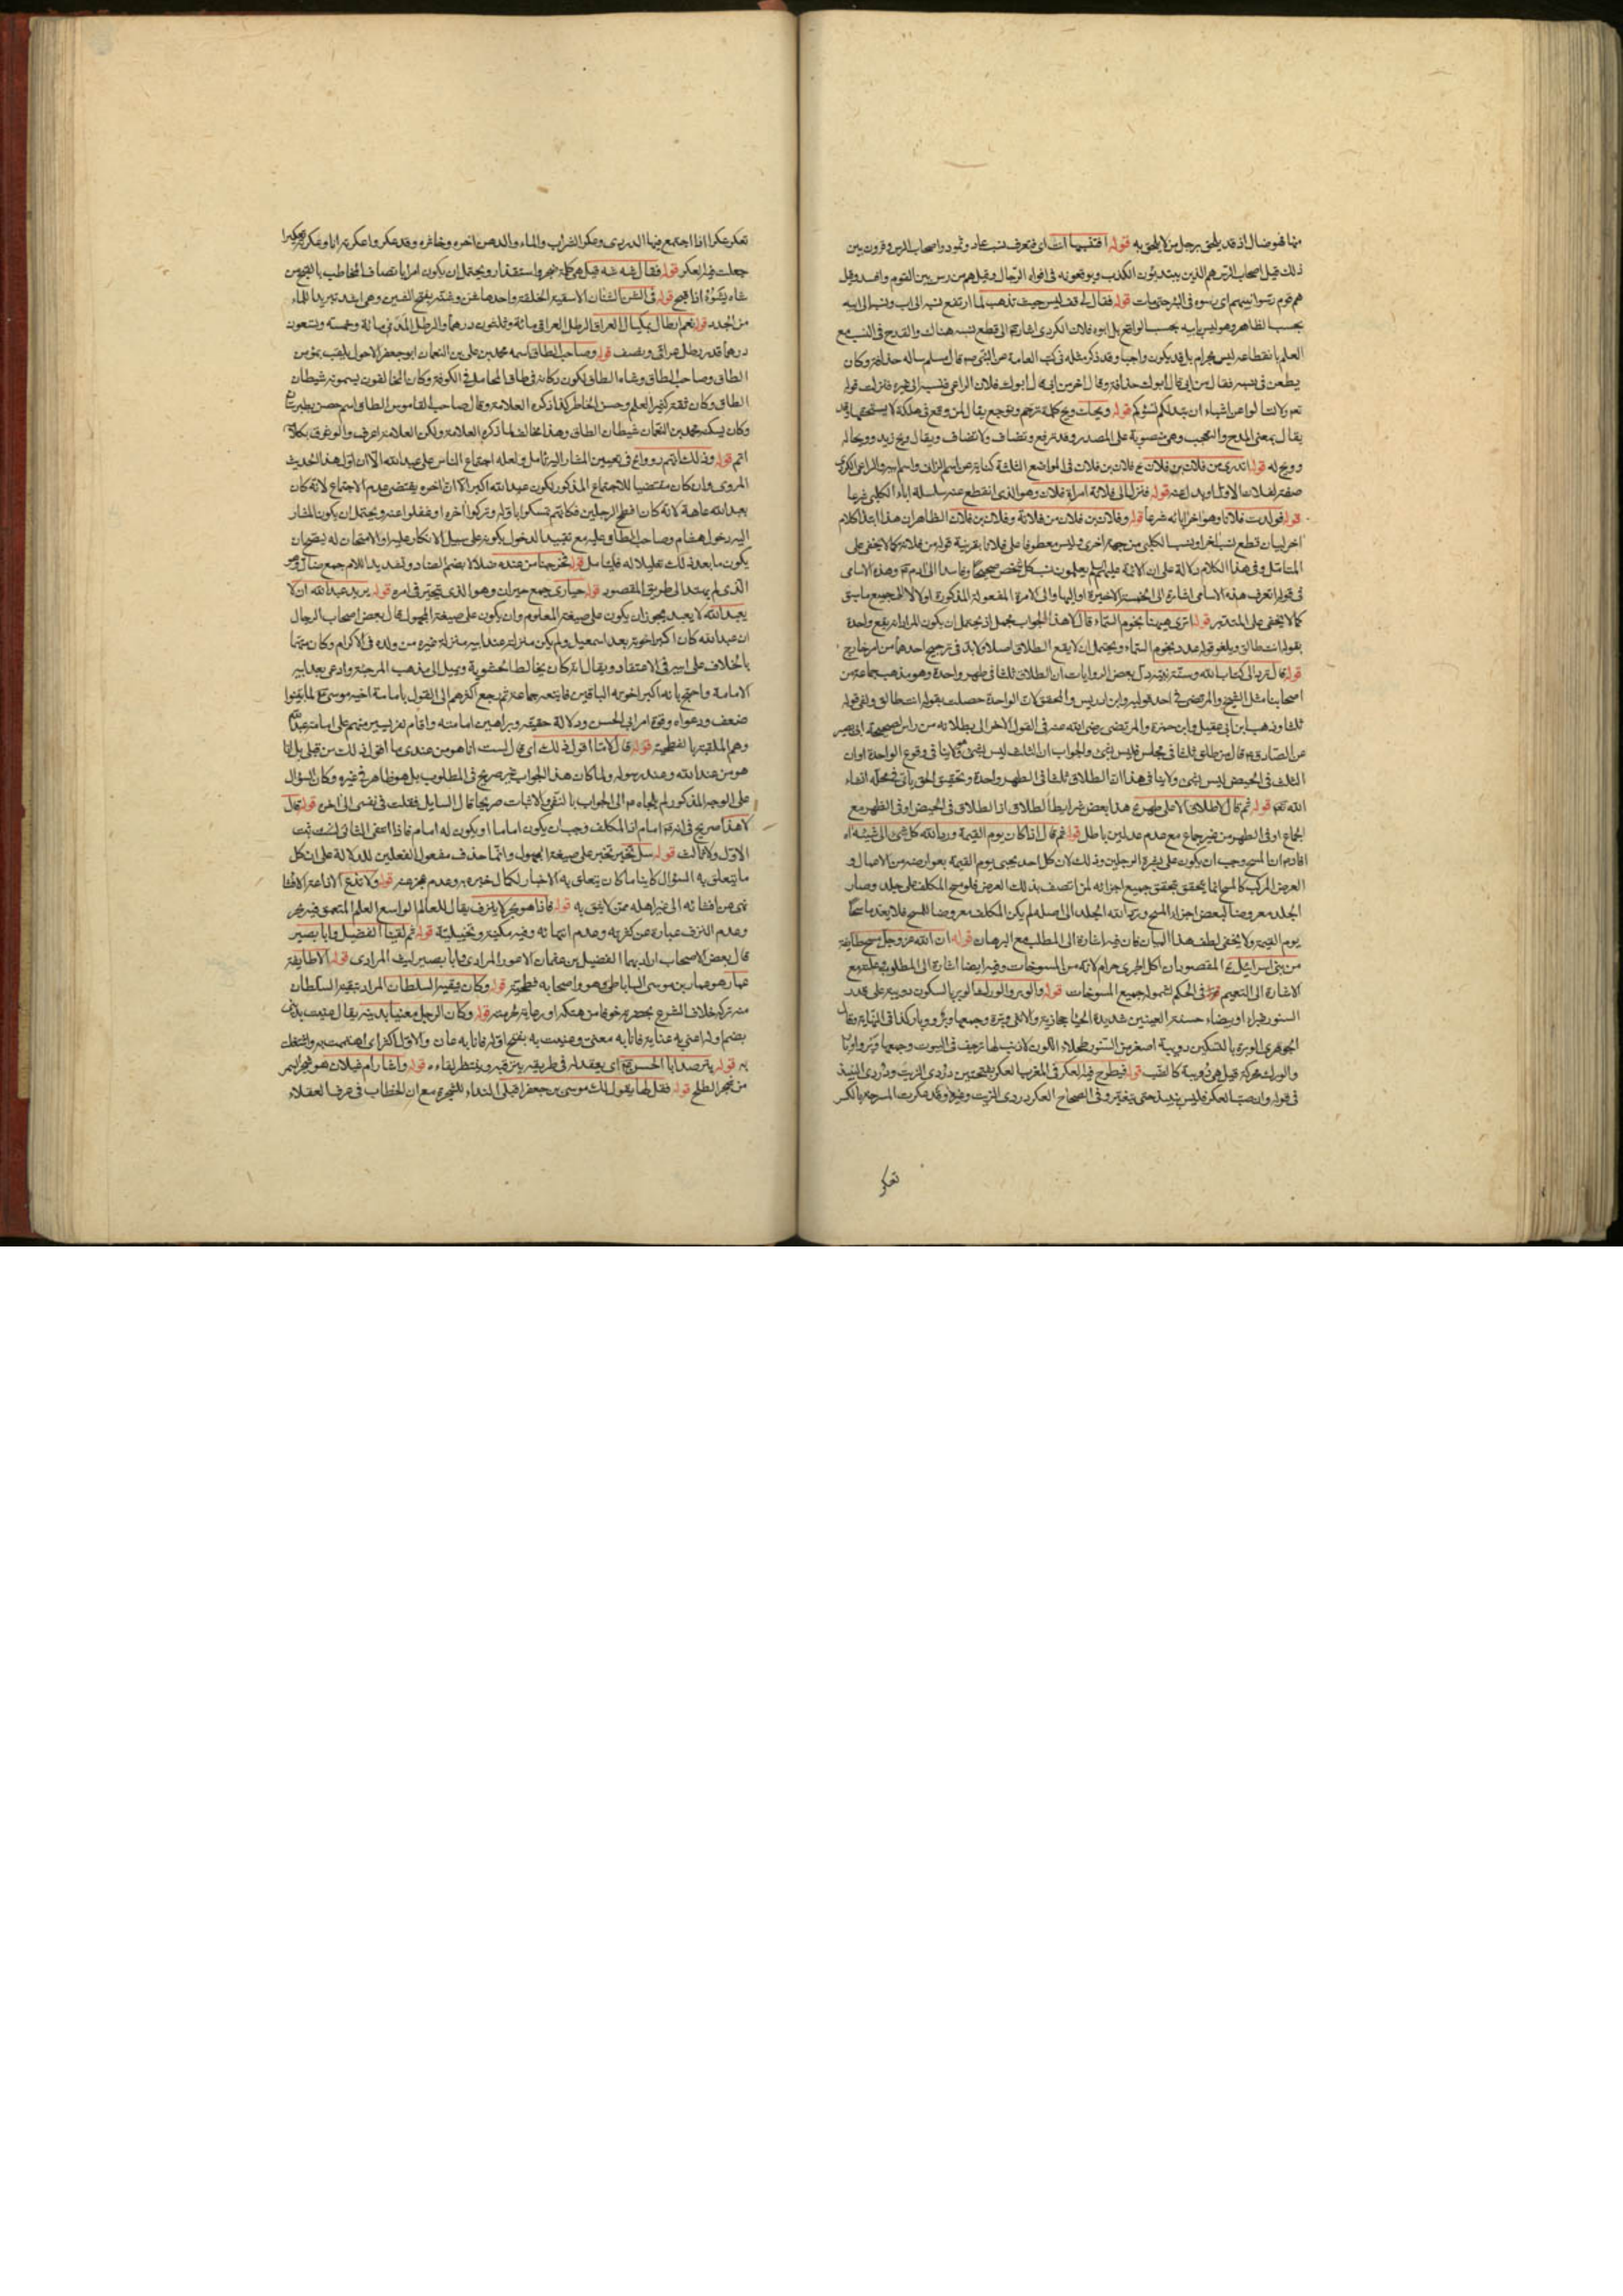 منها فهو ضال اذ قد يلحق برجل من لا يلحق به قوله افتنسبها انت اى فتعرف نسب عاد و ثمود و اصحاب الرس و قرون بين
ذلك قيل اصحاب الرس هم الذين يبتدؤن الكذب ويوقعونه فى افواه الرجال وقيل هم من رس بين القوم وافسد وقيل
هم قوم رسوا نبيهم اى رسوه فى البئر حتى مات قوله فقال لى قف ليس حيث تذهب لما ارتفع نسبه الى اب ونسب الى ابيه
بحسب الظاهر وهو ليس بابيه بحسب الواقع بل ابوه فلان الكردى اشار الى قطع نسبه هناك والقدح فى النسب مع
العلم بانقطاعه ليس بحرام بل قد يكون واجبا وقد ذكر مثله فى كتب العامة عن النبى ص قال مسلم ساله حذافة وكان
يطعن فى نسبه فقال من ابى قال ابوك حذافة وقال اخر من ابى قال ابوك فلان الراعى فنسبه الى غيره فنزلت قوله
تعالى لا تسالوا عن اشياء ان تبد لكم تسؤكم قوله ويحك ويح كلمة ترحم وتوجع يقال لمن وقع فى هلكة لا يستحقها وقد
يقال بمعنى المدح والتعجب وهى منصوبة على المصدر وقد ترفع وتضاف ولا تضاف ويقال ويح زيد وويحا له
وويح له قوله اتدرى من فلان بن فلان فلان بن فلان فى المواضع الثلثة كناية عن اسم الزانى واسم ابيه والراعى الكردى
صفة لفلان الاول او بدل عنه قوله فنزل الى فلانة امراة فلان وهو الذى انقطع عنه سلسلة اباء الكلبى شرعا
قوله فولدت فلانا وهو اخر ابائه شرعا قوله وفلان بن فلان من فلانة وفلان بن فلان الظاهر ان هذا ابتداء كلام
اخر لبيان قطع نسب اخر او نسب الكلبى من جهة اخرى وليس معطوفا على فلانا بقرينة قوله من فلانة كما لا يخفى على
المتامل وفى هذا الكلام دلالة على ان الائمة عليهم السلم يعلمون نسب كل شخص صحيحا وفاسدا الى ادم ع وهذه الاسامى
فى قوله اتعرف هذه الاسامى اشارة الى الخمسة الاخيرة او اليها والى الامراة المفعولة المذكورة اولا لا الى جميع ما سبق
كما لا يخفى على المتدبر قوله اترى هيهنا بنجوم السماء قال لا هذا الجواب مجمل اذ يحتمل ان يكون المراد انه يقع واحدة
بقوله انت طالق ويلغو قوله عدد نجوم السماء ويحتمل ان لا يقع الطلاق اصلا فلا بد فى ترجيح احدهما من امر خارج
قوله قال ترد الى كتاب الله وسنة نبيه دل بعض الروايات ان الطلاق ثلثا فى طهر واحدة وهو مذهب جماعة من
اصحابنا مثل الشيخ والمرتضى فى احد قوليه وابن ادريس والمحقق لان الواحدة حصلت بقوله انت طالق ولغى قوله
ثلثا وذهب ابن ابى عقيل وابن حمزة والمرتضى رضى الله عنه فى القول الاخر الى بطلانه من راس لصحيحة ابى بصير
عن الصادق ع قال من طلق ثلثا فى مجلس فليس بشئ والجواب ان الثلث ليس بشئ فلا ينافى وقوع الواحدة او ان
الثلث فى الحيض ليس بشئ ولا ينافى هذا ان الطلاق ثلثا فى الطهر واحدة وتحقيق الحق ياتى فى محله انشاء
الله تعالى قوله ثم قال لا طلاق الا على طهر هذا بعض شرايط الطلاق اذ الطلاق فى الحيض او فى الطهر مع
الجماع او فى الطهر من غير جماع مع عدم عدلين باطل قوله ثم قال اذا كان يوم القيمة ورد الله كل شئ الى شيئه اه
افاد ع ان المسح وجب ان يكون على بشرة الرجلين وذلك لان كل احد يجيئ يوم القيمة بعوارضه من الاعمال و
العرض المركب كالمسح انما يتحقق بتحقق جميع اجزائه لمن اتصف بذلك العرض فلو مسح المكلف على جلد وصار
الجلد معروضا لبعض اجزاء المسح ورد الله الجلد الى اصله لم يكن المكلف معروضا للمسح فلا يعد ماسحا
يوم القيمة ولا يخفى لطف هذا البيان فان فيه اشارة الى المطلب مع البرهان قوله ان الله عز وجل مسخ طايفة
من بنى اسرائيل المقصود ان اكل الجرى حرام لانه من المسوخات وفيه ايضا اشارة الى المطلوب وعلته مع
الاشارة الى التعميم فى الحكم لشموله جميع المسوخات قوله والوبر والورل الوبر بالسكون دويبة على قدر
السنور غبراء او بيضاء حسنة العينين شديدة الحياء حجازية والانثى وبرة وجمعها وبر ووبار كذا فى النهاية وقال
الجوهرى الوبرة بالتسكين دويبة اصغر من السنور طحلاء اللون لا ذنب لها ترجف فى البيوت وجمعها وبر ووبار
والورل محركة قيل هى دويبة كالضب قوله فيطرح فيه العكر فى المغرب العكر بفتحتين دردى الزيت ودردى النبيذ
فى قوله وان صب العكر فليس بنبيذ حتى يتغير وفى الصحاح العكر دردى الزيت وغيره وقد عكرت المسرجة بالكسر
تعكر
تعكر عكرا اذا اجتمع فيها الدردى وعكر الشراب والماء والدهن اخره وخاثره وقد عكر واعكرته انا وعكرته تعكيرا
جعلت فيه العكر قوله فقال شه شه قيل هى كلمة زجر واستقذار ويحتمل ان يكون امرا باتصاف المخاطب بالقبح من
شاه يشوه اذا قبح قوله فى الشن الشنان الاسقية الخلقة واحدها شن وشنة بفتح الشين وهى اشد تبريدا للماء
من الجدد قوله نعم ارطال بمكيال العراق الرطل العراقى مائة وثلثون درهما والرطل المدنى مائة وخمسة وتسعون
درهما قدر رطل عراقى ونصف قوله وصاحب الطاق اسمه محمد بن على بن النعمان ابو جعفر الاحول يلقب بمؤمن
الطاق وصاحب الطاق وشاه الطاق لكون دكانه فى طاق المحامل فى الكوفة وكان المخالفون يسمونه شيطان
الطاق وكان ثقة كثير العلم وحسن الخاطر كذا ذكره العلامة وقال صاحب القاموس الطاق اسم حصن بطبرستان
وكان يسكنه محمد بن النعمان شيطان الطاق وهذا مخالف لما ذكره العلامة ولكن العلامة اعرف والوثوق بكلامه
اتم قوله وذلك انهم رووا فى تعيين المشار اليه تامل ولعله اجتماع الناس على عبد الله الا ان اول هذا الحديث
المروى وان كان مقتضيا للاجتماع المذكور لكون عبد الله اكبر الا ان اخره يقتضى عدم الاجتماع لانه كان
بعبد الله عاهة لانه كان افطح الرجلين فكانهم تمسكوا باوله وتركوا اخره او غفلوا عنه ويحتمل ان يكون المشار
اليه دخول هشام وصاحب الطاق عليه مع تقييد الدخول بكونه على سبيل الانكار عليه او الامتحان له
يكون ما بعد ذلك تعليلا له فليتامل قوله فخرجنا من عنده ضلالا بضم الضاد وتشديد اللام جمع ضال وهو
الذى لم يهتد الى طريق المقصود قوله حيارى جمع حيران وهو الذى تحير فى امره قوله يريد عبد الله ان لا
يعبد الله لا يعبد يجوز ان يكون على صيغة المعلوم وان يكون على صيغة المجهول قال بعض اصحاب الرجال
ان عبد الله كان اكبر اخوته بعد اسمعيل ولم يكن منزلته عند ابيه منزلة غيره من ولده فى الاكرام وكان متهما
بالخلاف على ابيه فى الاعتقاد ويقال انه كان يخالط الحشوية ويميل الى مذهب المرجئة وادعى بعد ابيه
الامامة واحتج بانه اكبر اخوته الباقين فاتبعه جماعة ثم رجع اكثرهم الى القول بامامة اخيه موسى ع لما تبينوا
ضعف دعواه وقوة امر ابى الحسن ودلالة حقيته وبراهين امامته واقام نفر يسير منهم على امامة عبد الله
وهم الملقبة بالفطحية قوله قال لا ما اقول ذلك اى قال لست انا هو من عندى ما اقول ذلك من قبلى بل انا
هو من عند الله وعند رسوله ولما كان هذا الجواب غير صريح فى المطلوب بل هو ظاهر فى غيره وكان السؤال
على الوجه المذكور لم يلجاه ع الى الجواب بالنفى والاثبات صريحا قال السايل فقلت فى نفسى الى اخره قوله قال
لا هذا صريح فى انه ع امام اذ المكلف وجب ان يكون اماما او يكون له امام فاذا انتفى الثانى ثبت
الاول ولا ثالث قوله سل تخبر تخبر على صيغة المجهول وانما حذف مفعول الفعلين للدلالة على ان كل
ما يتعلق به السؤال كاينا ما كان يتعلق به الاخبار لكمال خبره وعدم عجزه قوله ولا تذع الاذاعة الافشا
نهى عن افشائه الى غير اهله ممن لا يثق به قوله فاذا هو بحر لا ينزف يقال للعالم الواسع العلم المتعمق فيه بحر
وعدم النزف عبارة عن كثرته وعدم انتهائه وفيه مكنية وتخييلية قوله ثم لقينا الفضيل وابا بصير
قال بعض الاصحاب اراد بهما الفضيل بن عثمان الاعور المرادى وابا بصير ليث المرادى قوله الا طايفة
عمار هو عمار بن موسى الساباطى وهو واصحابه فطحية قوله وكان يتقيه السلطان المراد بتقية السلطان
منه تركه خلاف الشرع بحضرته خوفا من هتكه او رعاية لحرمته قوله وكان الرجل معنيا بدينه يقال عنيت بذلك
بضم اوله اعنى به عناية فانا به معنى وعنيت به بفتح اوله فانا به عان والاول اكثر اى اهتممت به واشتغلت
به قوله يترصد ابا الحسن اى يعقد له فى طريقه يترقبه وينتظر لقاءه قوله واشار ام غيلان هو شجر السمر
من شجر الطلح قوله فقل لها يقول لك موسى بن جعفر اقبلى النداء للشجرة مع ان الخطاب فى عرف العقلاء